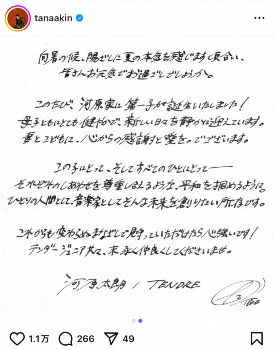 tanaakin
向暑の候、陽ざしに夏の本格を感じます頃合い、
皆さんお元気でお過ごしでしょうか。
このたび、河原家に第一子が誕生いたしました！
母子ともにとても健やかで、新しい日々を静かに迎えています。
妻とこどもに、心からの感謝と愛を。でございます。
この子にとって、そしてすべてのひとにとって──
それぞれのしあわせを尊重しあえるような、平和を掴めるように。
ひとりの人間として、音楽家としてそんな未来を創りたい所存です。
これからも変わらぬまなざしで見守っていただけたら心強いです！
テンダージュニア共々、末永く仲良くしてくださいませ。
河原太朗 / TENDRE
1.1万 266 296